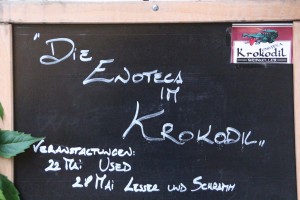 "DIE
ENOTECA
IM
KROKODIL"
Krokodil
VERANSTALTUNGEN:
22 MAI USED
28 MAI LESER UND SCHRAMM